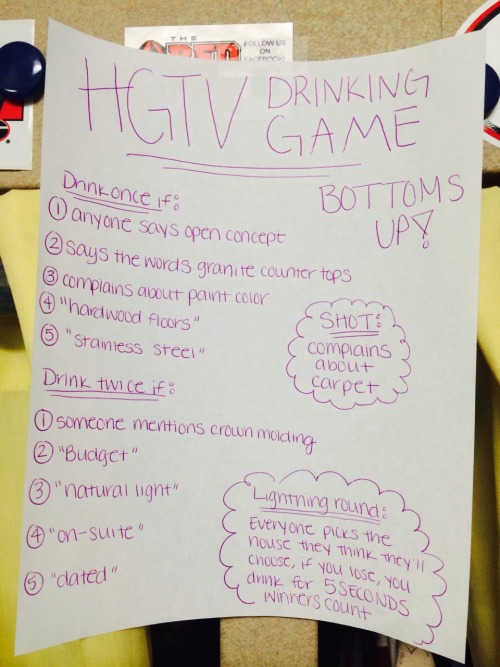 THE
FOLLOW US
ON
FACEBOOK!
HGTV DRINKING
GAME
BOTTOMS
UP!
Drink once if:
① anyone says open concept
② says the words granite counter tops
③ complains about paint color
④ "hardwood floors"
⑤ "stainless steel"
SHOT:
complains
about
carpet
Drink twice if:
① someone mentions crown molding
② "Budget"
③ "natural light"
④ "on-suite"
⑤ "dated"
Lightning round:
Everyone picks the
house they think they'll
choose, if you lose, you
drink for 5 SECONDS
winners count